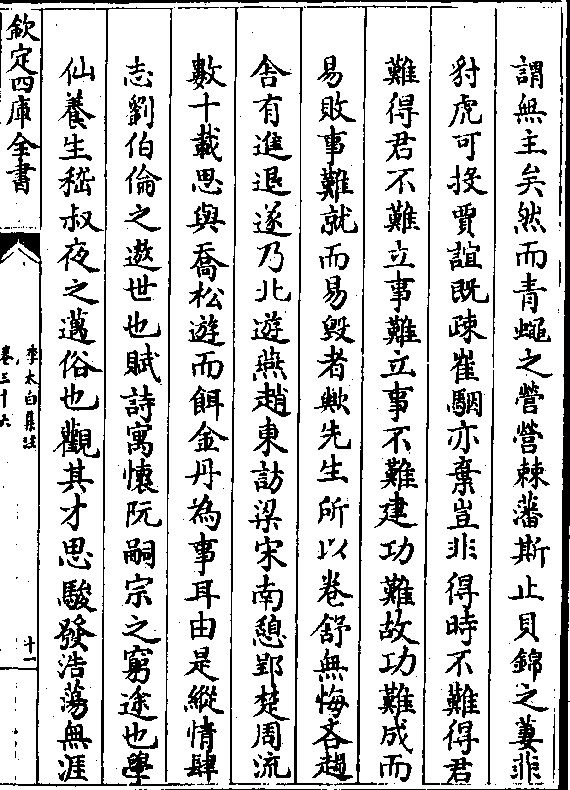 謂無主矣然而青蠅之營營棘藩斯止貝錦之萋非
豺虎可投賈誼既疎崔駰亦棄豈非得時不難得君
難得君不難立事難立事不難建功難故功難成而
易敗事難就而易毀者歟先生所以卷舒無悔吝趨
舍有進退遂乃北遊燕趙東訪梁宋南憩郢楚周流
數十載思與喬松遊而餌金丹為事耳由是縱情肆
志劉伯倫之遨世也賦詩寓懷阮嗣宗之窮途也學
仙養生嵇叔夜之邁俗也觀其才思駿發浩蕩無涯
欽定四庫全書
李太白集注
卷三十六
十一